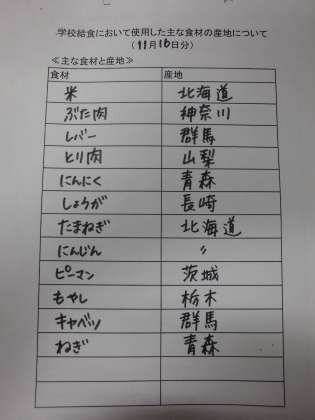 学校給食において使用した主な食材の産地について
(11月10日分)
≪主な食材と産地≫
食材 産地
米 北海道
ぶた肉 神奈川
レバー 群馬
とり肉 山梨
にんにく 青森
しょうが 長崎
たまねぎ 北海道
にんじん 〃
ピーマン 茨城
もやし 栃木
キャベツ 群馬
ねぎ 青森